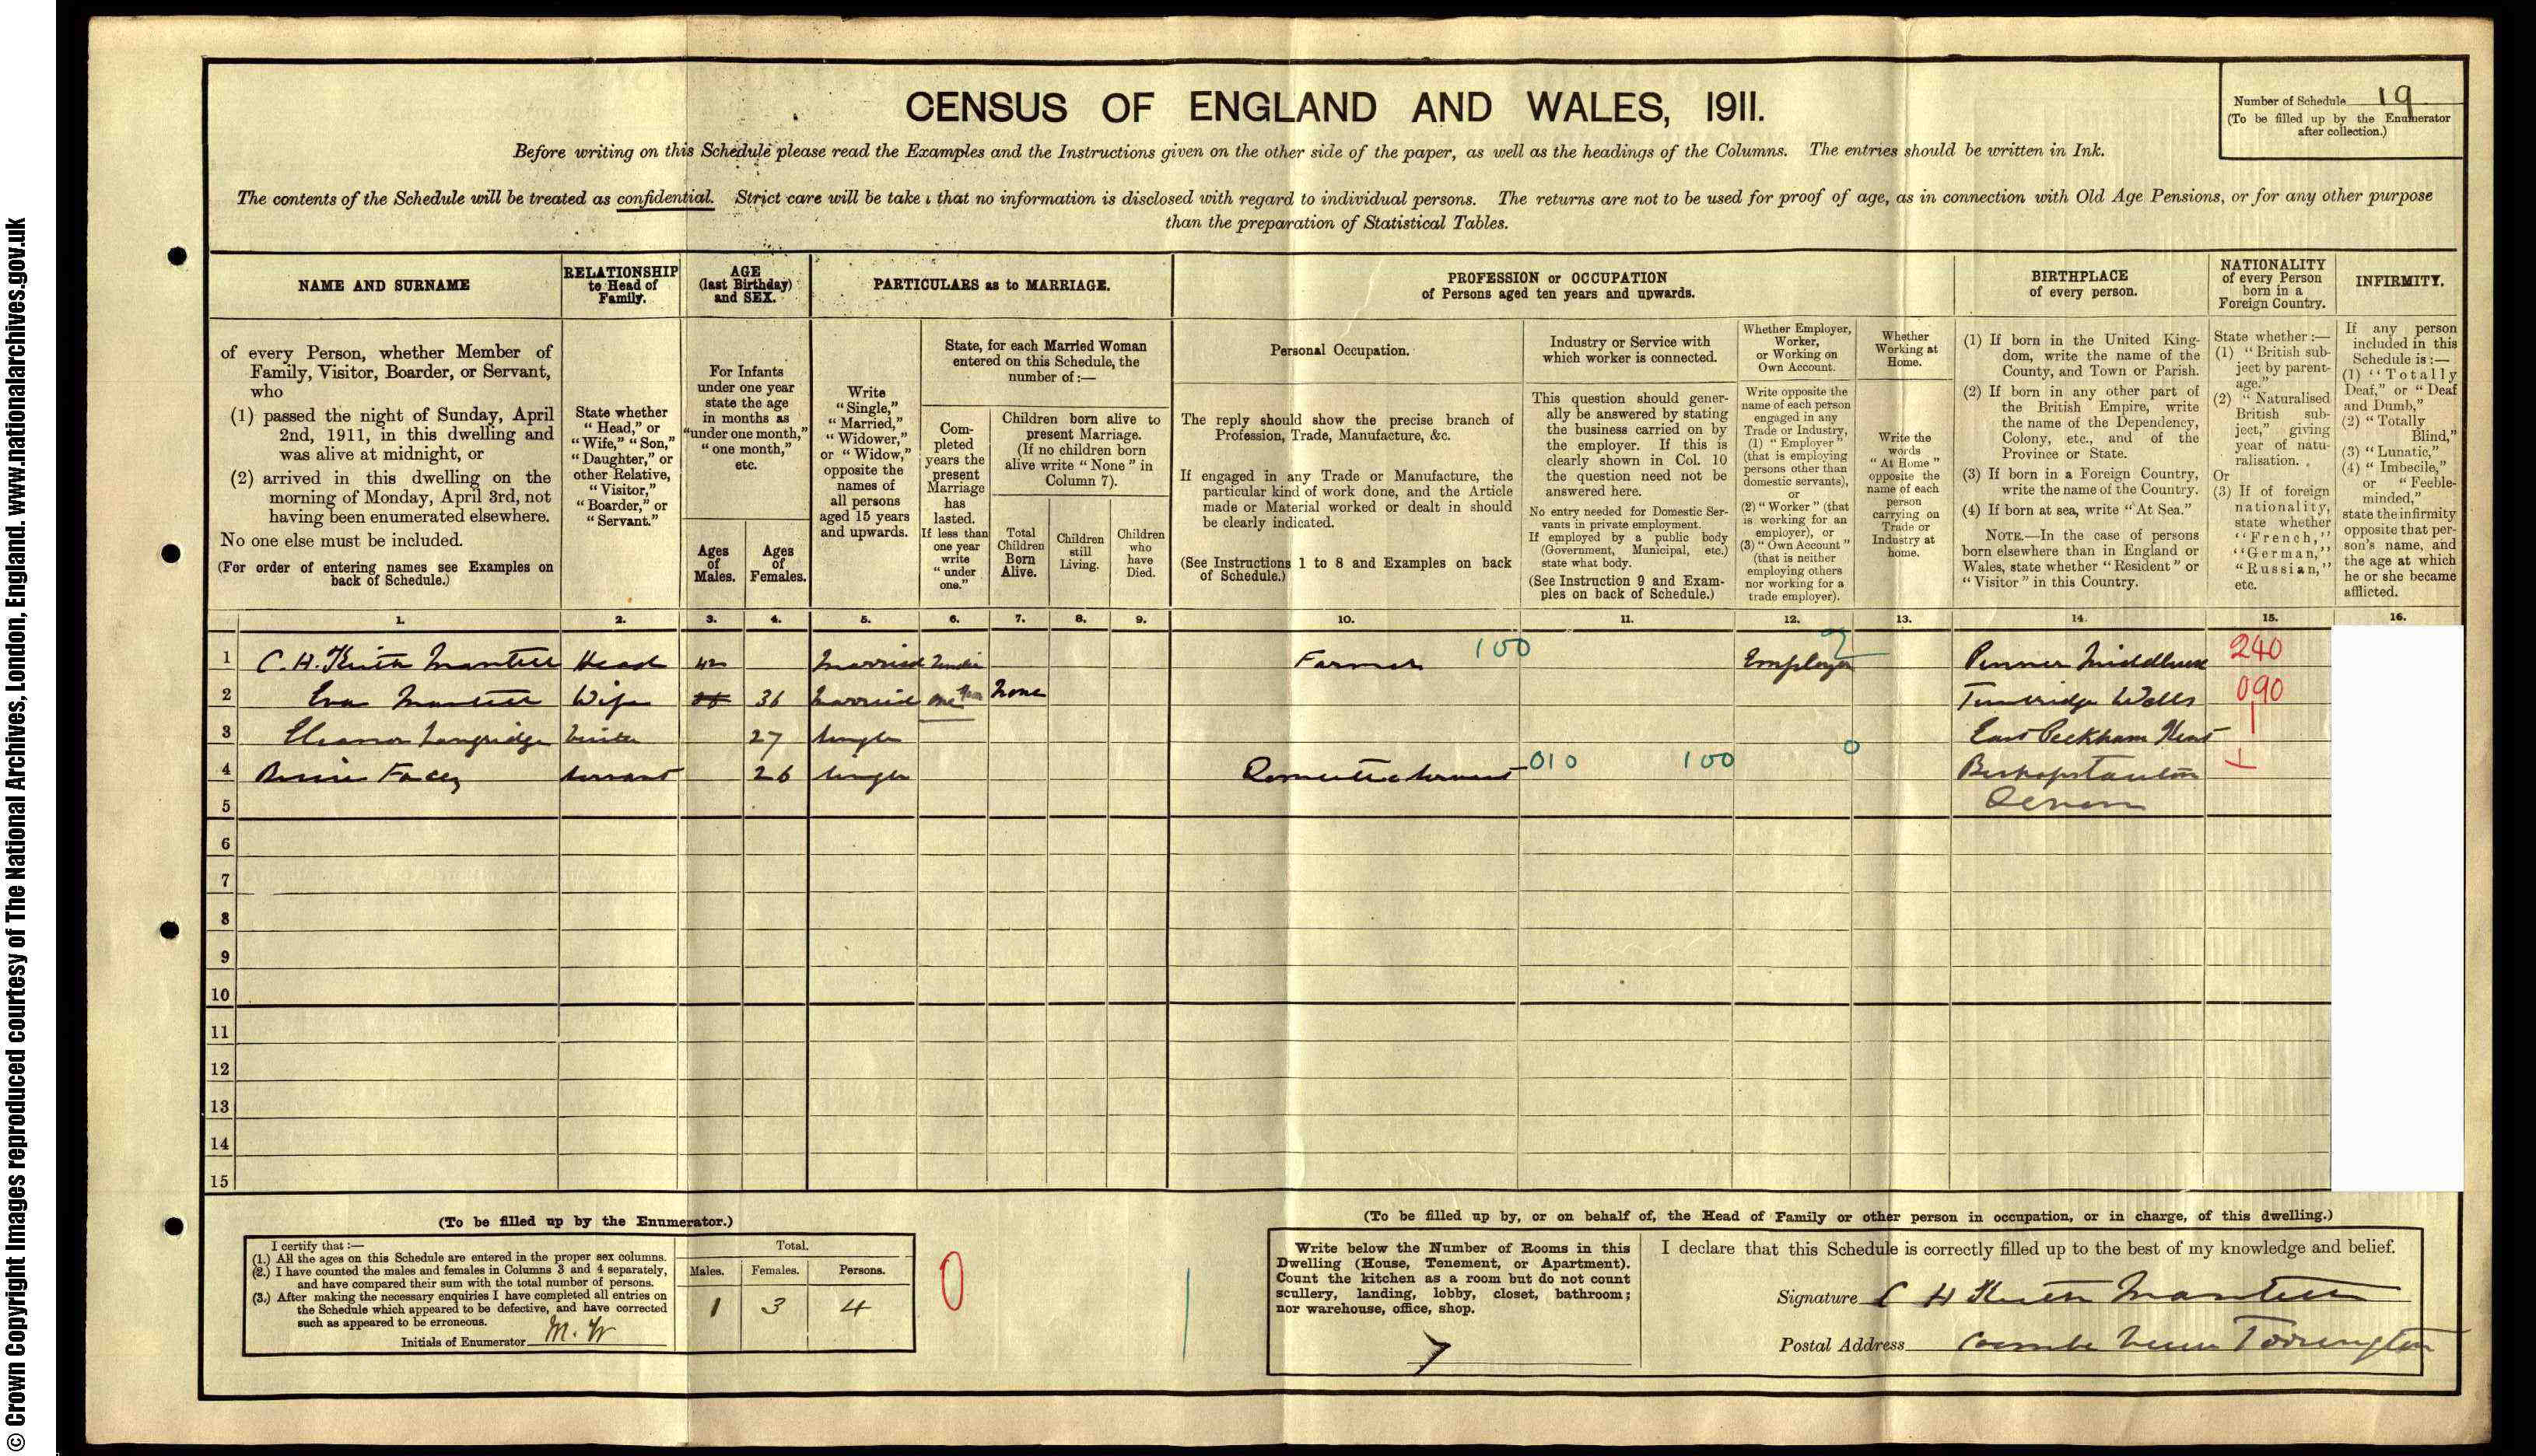 © Crown Copyright Images reproduced courtesy of The National Archives, London, England. www.nationalarchives.gov.uk
CENSUS OF ENGLAND AND WALES, 1911.
Number of Schedule 19
(To be filled up by the Enumerator
after collection.)
Before writing on this Schedule please read the Examples and the Instructions given on the other side of the paper, as well as the headings of the Columns. The entries should be written in Ink.
The contents of the Schedule will be treated as confidential. Strict care will be take that no information is disclosed with regard to individual persons. The returns are not to be used for proof of age, as in connection with Old Age Pensions, or for any other purpose
than the preparation of Statistical Tables.
NAME AND SURNAME
of every Person, whether Member of
Family, Visitor, Boarder, or Servant,
who
(1) passed the night of Sunday, April
2nd, 1911, in this dwelling and
was alive at midnight, or
(2) arrived in this dwelling on the
morning of Monday, April 3rd, not
having been enumerated elsewhere.
No one else must be included.
(For order of entering names see Examples on
back of Schedule.)
RELATIONSHIP
to Head of
Family.
State whether
"Head," or
"Wife," "Son,"
"Daughter," or
other Relative,
"Visitor,"
"Boarder," or
"Servant."
AGE
(last Birthday)
and SEX.
For Infants
under one year
state the age
in months as
"under one month,"
"one month,"
etc.
Ages
of
Males.
Ages
of
Females.
PARTICULARS as to MARRIAGE.
Write
"Single,"
"Married,"
"Widower,"
or "Widow,"
opposite the
names of
all persons
aged 15 years
and upwards.
State, for each Married Woman
entered on this Schedule, the
number of :—
Com-
pleted
years the
present
Marriage
has
lasted.
If less than
one year
write
"under
one."
Children born alive to
present Marriage.
(If no children born
alive write "None" in
Column 7).
Total
Children
Born
Alive.
Children
still
Living.
Children
who
have
Died.
PROFESSION or OCCUPATION
of Persons aged ten years and upwards.
Personal Occupation.
The reply should show the precise branch of
Profession, Trade, Manufacture, &c.
If engaged in any Trade or Manufacture, the
particular kind of work done, and the Article
made or Material worked or dealt in should
be clearly indicated.
(See Instructions 1 to 8 and Examples on back
of Schedule.)
Industry or Service with
which worker is connected.
This question should gener-
ally be answered by stating
the business carried on by
the employer. If this is
clearly shown in Col. 10
the question need not be
answered here.
No entry needed for Domestic Ser-
vants in private employment.
If employed by a public body
(Government, Municipal, etc.)
state what body.
(See Instruction 9 and Exam-
ples on back of Schedule.)
Whether Employer,
Worker,
or Working on
Own Account.
Write opposite the
name of each person
engaged in any
Trade or Industry,
(1) "Employer"
(that is employing
persons other than
domestic servants),
or
(2) "Worker" (that
is working for an
employer), or
(3) "Own Account"
(that is neither
employing others
nor working for a
trade employer).
Whether
Working at
Home.
Write the
words
"At Home"
opposite the
name of each
person
carrying on
Trade or
Industry at
home.
BIRTHPLACE
of every person.
(1) If born in the United King-
dom, write the name of the
County, and Town or Parish.
(2) If born in any other part of
the British Empire, write
the name of the Dependency,
Colony, etc., and of the
Province or State.
(3) If born in a Foreign Country,
write the name of the Country.
(4) If born at sea, write "At Sea."
NOTE.—In the case of persons
born elsewhere than in England or
Wales, state whether "Resident" or
"Visitor" in this Country.
NATIONALITY
of every Person
born in a
Foreign Country.
State whether :—
(1) "British sub-
ject by parent-
age."
(2) "Naturalised
British sub-
ject," giving
year of natu-
ralisation.
Or
(3) If of foreign
nationality,
state whether
"French,"
"German,"
"Russian,"
etc.
INFIRMITY.
If any person
included in this
Schedule is :—
(1) "Totally
Deaf," or "Deaf
and Dumb,"
(2) "Totally
Blind,"
(3) "Lunatic,"
(4) "Imbecile,"
or "Feeble-
minded,"
state the infirmity
opposite that per-
son's name, and
the age at which
he or she became
afflicted.
1. 2. 3. 4. 5. 6. 7. 8. 9. 10. 11. 12. 13. 14. 15. 16.
1 C. H. Keith Mantell Head 42 Married Under Farmer 100 Employer 2 Pinner Middlesex 240
2 Eva Mantell Wife 36 Married one Year None Tunbridge Wells 090
3 Eleanor Langridge Visitor 27 Single East Peckham Kent
4 Bessie Facey Servant 26 Single Domestic Servant 010 100 0 Bishopstawton
5 Devon
6
7
8
9
10
11
12
13
14
15
(To be filled up by the Enumerator.)
I certify that :—
(1.) All the ages on this Schedule are entered in the proper sex columns.
(2.) I have counted the males and females in Columns 3 and 4 separately,
and have compared their sum with the total number of persons.
(3.) After making the necessary enquiries I have completed all entries on
the Schedule which appeared to be defective, and have corrected
such as appeared to be erroneous.
Initials of Enumerator M. W
Total.
Males. Females. Persons.
1 3 4
0
(To be filled up by, or on behalf of, the Head of Family or other person in occupation, or in charge, of this dwelling.)
Write below the Number of Rooms in this
Dwelling (House, Tenement, or Apartment).
Count the kitchen as a room but do not count
scullery, landing, lobby, closet, bathroom;
nor warehouse, office, shop.
7
I declare that this Schedule is correctly filled up to the best of my knowledge and belief.
Signature C H Keith Mantell
Postal Address Coombe Torrington